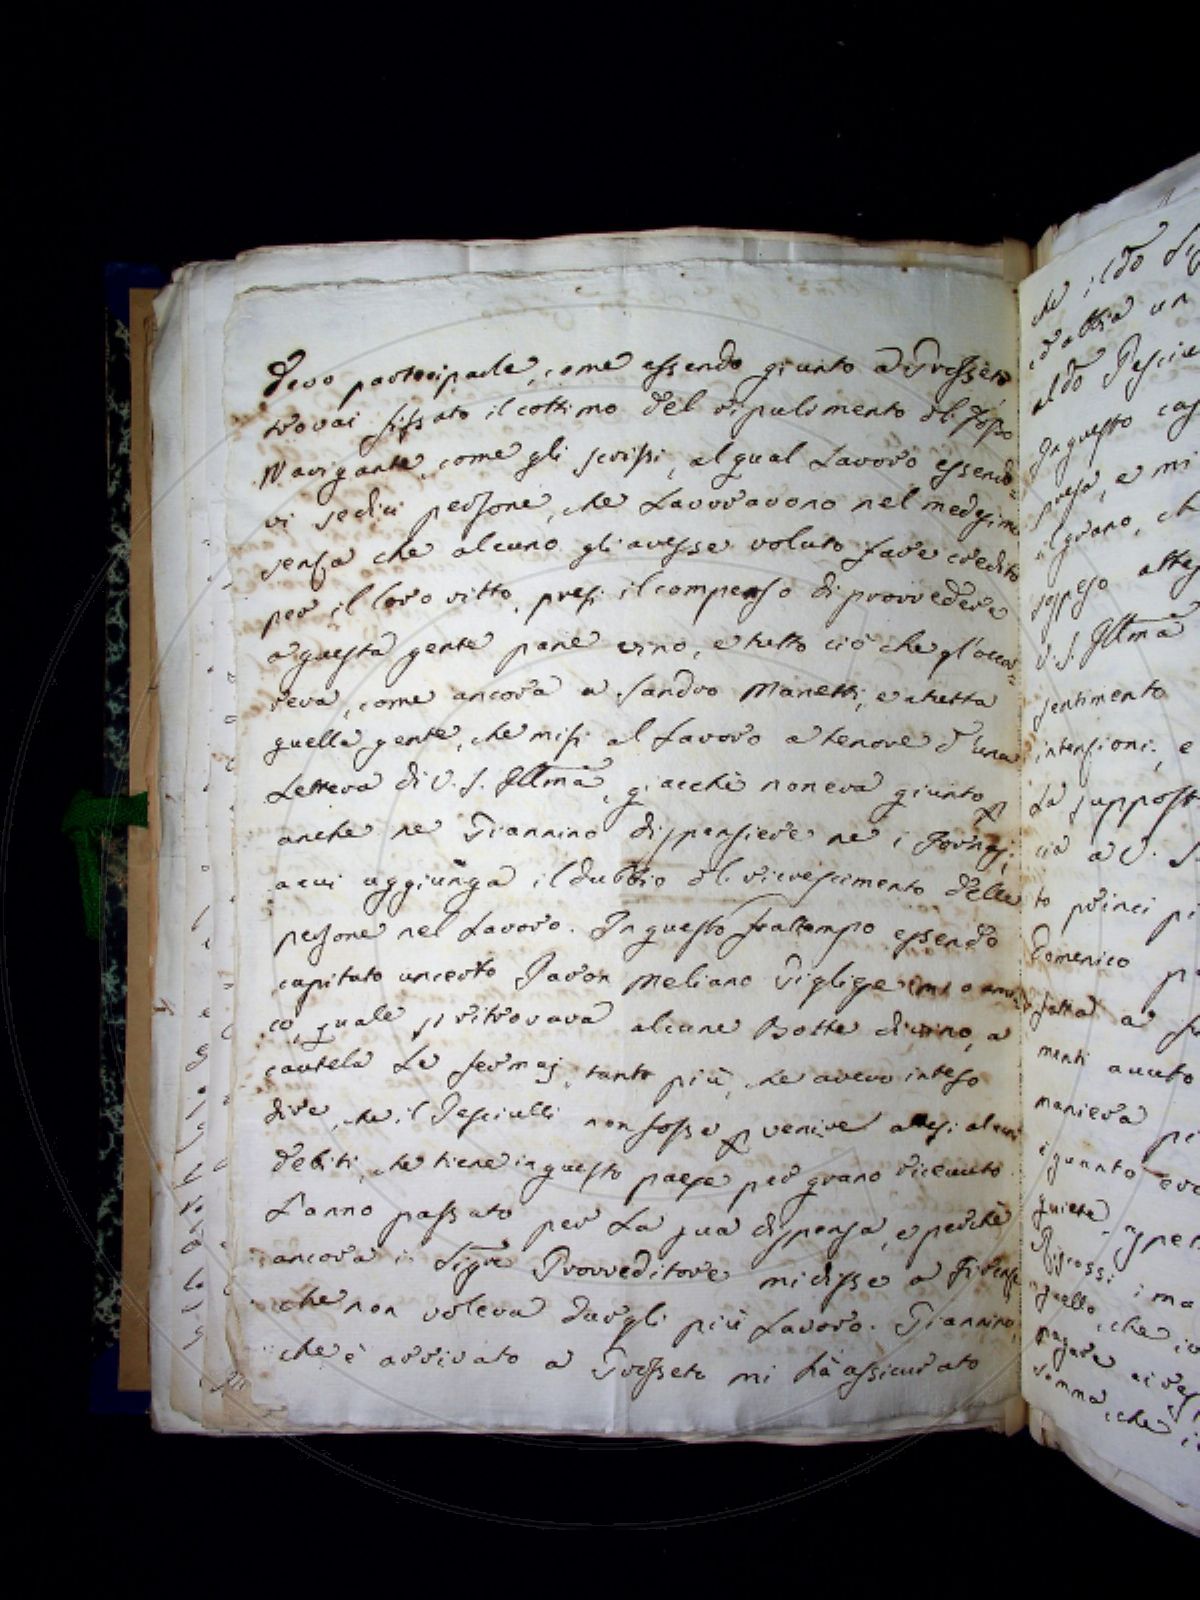 Devo partecipale, come essendo giunto a Grosseto
trovai fissato il cottimo del ripulimento dl. Fosso
Navigante, come gli scrissi, al qual Lavoro essendo=
vi sedici persone, che Lavoravono nel medesimo
senza che alcuno gli avesse voluto fare credito
per il loro vitto, presi il compenso di provvedere
a questa gente pane vino, e tutto ciò che gl'occor=
reva, come ancora a Sandro Manetti, e a tutta
quella gente, che missi al Lavoro a tenore d'una
Lettera di V. S. Illma, giacchè non era giunto
anche ne Giannino dispensiere ne i
a cui aggiunga il dubbio dl. ricrescimento delle
persone nel Lavoro. In questo frattempo essendo
capitato un certo Meliano mio ami=
co, quale si ritrovava alcune Botte di vino, a
cautela Le fermai, tanto più, che avevo inteso
dire, che il Pesciulli non fosse p venire attesi alcuni
debiti, che tiene in questo paese per grano ricevuto
L'anno passato per La sua dispensa, e perchè
ancora il Sigre Provveditore mi disse a Firenze
che non voleva dargli più Lavoro. Giannino,
che è arrivato a Grosseto mi hà assicurato
che il do
ed abbia un
al do
In questo
presa, e mi
il grano, ch
sospeso
V. S. Illma
sentimento
intenzioni, e
La
cia a V. S.
to princi pi
Domenico
fatta a
menti avuto
maniera
quanto
quiete
Riscossi i
quello, che
pagare ai
somma, che